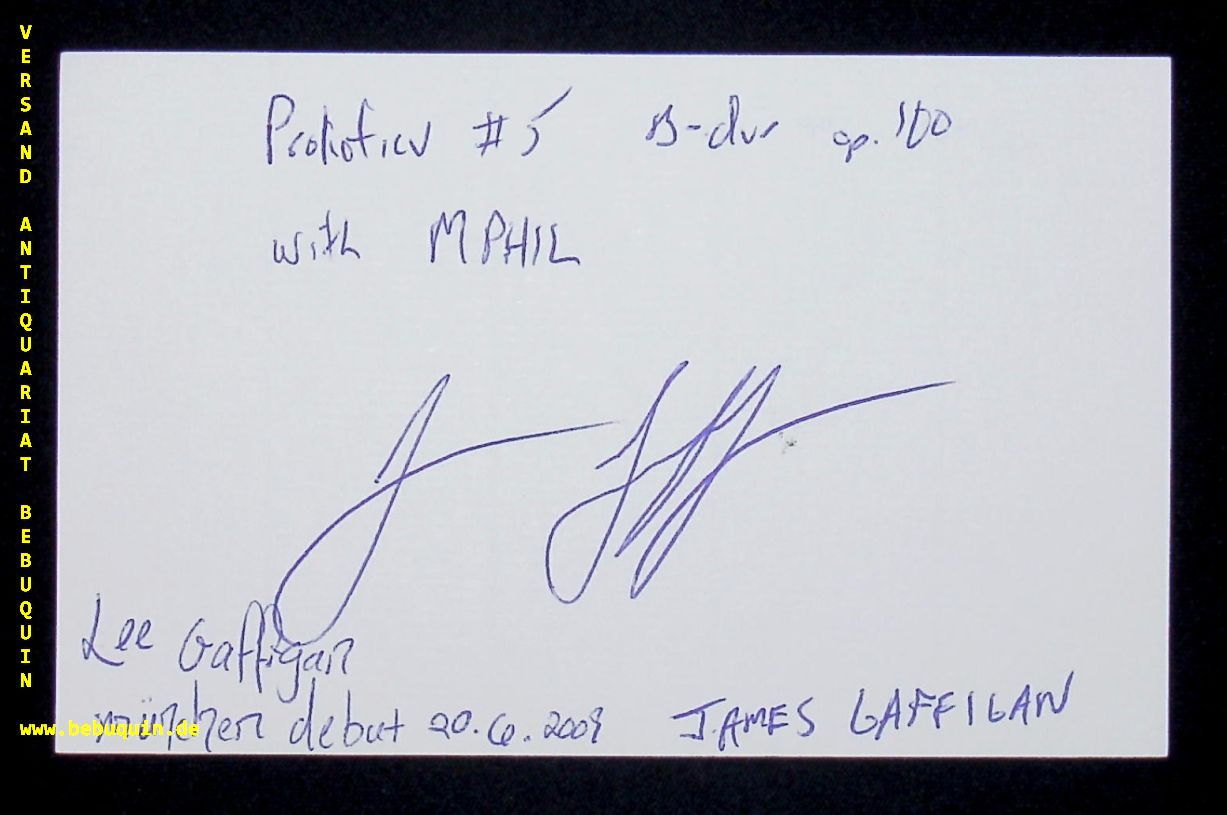 VERSAND ANTIQUARIAT BEBUQUIN
Prokofiev #5 B-dur op. 100
with MPHIL
Lee Gaffigan
münchen debut 20.6.2009 JAMES GAFFIGAN
www.bebuquin.de